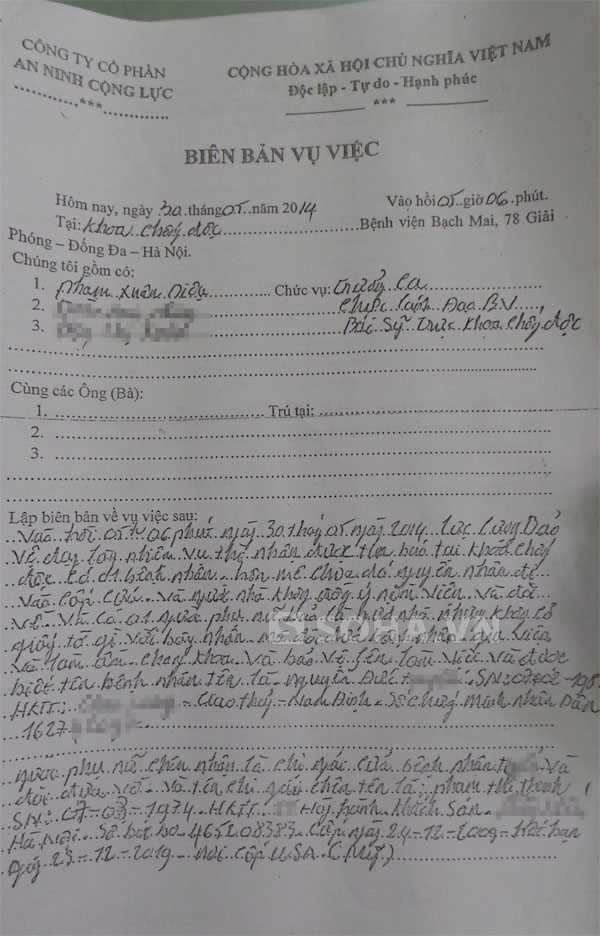 CÔNG TY CỔ PHẦN
AN NINH CỘNG LỰC
***
CỘNG HÒA XÃ HỘI CHỦ NGHĨA VIỆT NAM
Độc lập - Tự do - Hạnh phúc
***
BIÊN BẢN VỤ VIỆC
Hôm nay, ngày 30 tháng 05 năm 2014 Vào hồi 05 giờ 06 phút.
Tại: Khoa chống độc Bệnh viện Bạch Mai, 78 Giải
Phóng – Đống Đa – Hà Nội.
Chúng tôi gồm có:
1. Phạm Xuân Diệu Chức vụ: Trưởng Ca
2. Đạo B.V
3. Bác Sỹ Trực Khoa chống độc
Cùng các Ông (Bà):
1. Trú tại:
2.
3.
Lập biên bản về vụ việc sau:
Vào hồi 05 h 06 phút ngày 30 tháng 05 năm 2014 lực lượng Bảo
vệ đang làm nhiệm vụ thì nhận được tin báo tại khoa chống
độc có 01 bệnh nhân hôn mê chưa rõ nguyên nhân
vào cấp cứu và người nhà không đồng ý nằm viện và đòi
về. Và có 01 người phụ nữ bảo là người nhà nhưng không có
giấy tờ gì với bệnh nhân viện
SOHA.VN
và khoa và bảo vệ lên làm việc và được
biết tên bệnh nhân tên là Nguyễn Đức SN: 198
HKTT: Giao thủy - Nam Định - Số chứng minh nhân dân
1627
người phụ nữ nhận là chị gái của bệnh nhân và
đòi đưa về và tên chị tên là: phạm thị thanh
SN: 07-03-1974 HKTT: Hàng hành Khách Sạn
Hà Nội. Số hộ 465208383 cấp ngày 24-12-2009 hết hạn
23-12-2019 nơi cấp USA (Mỹ)